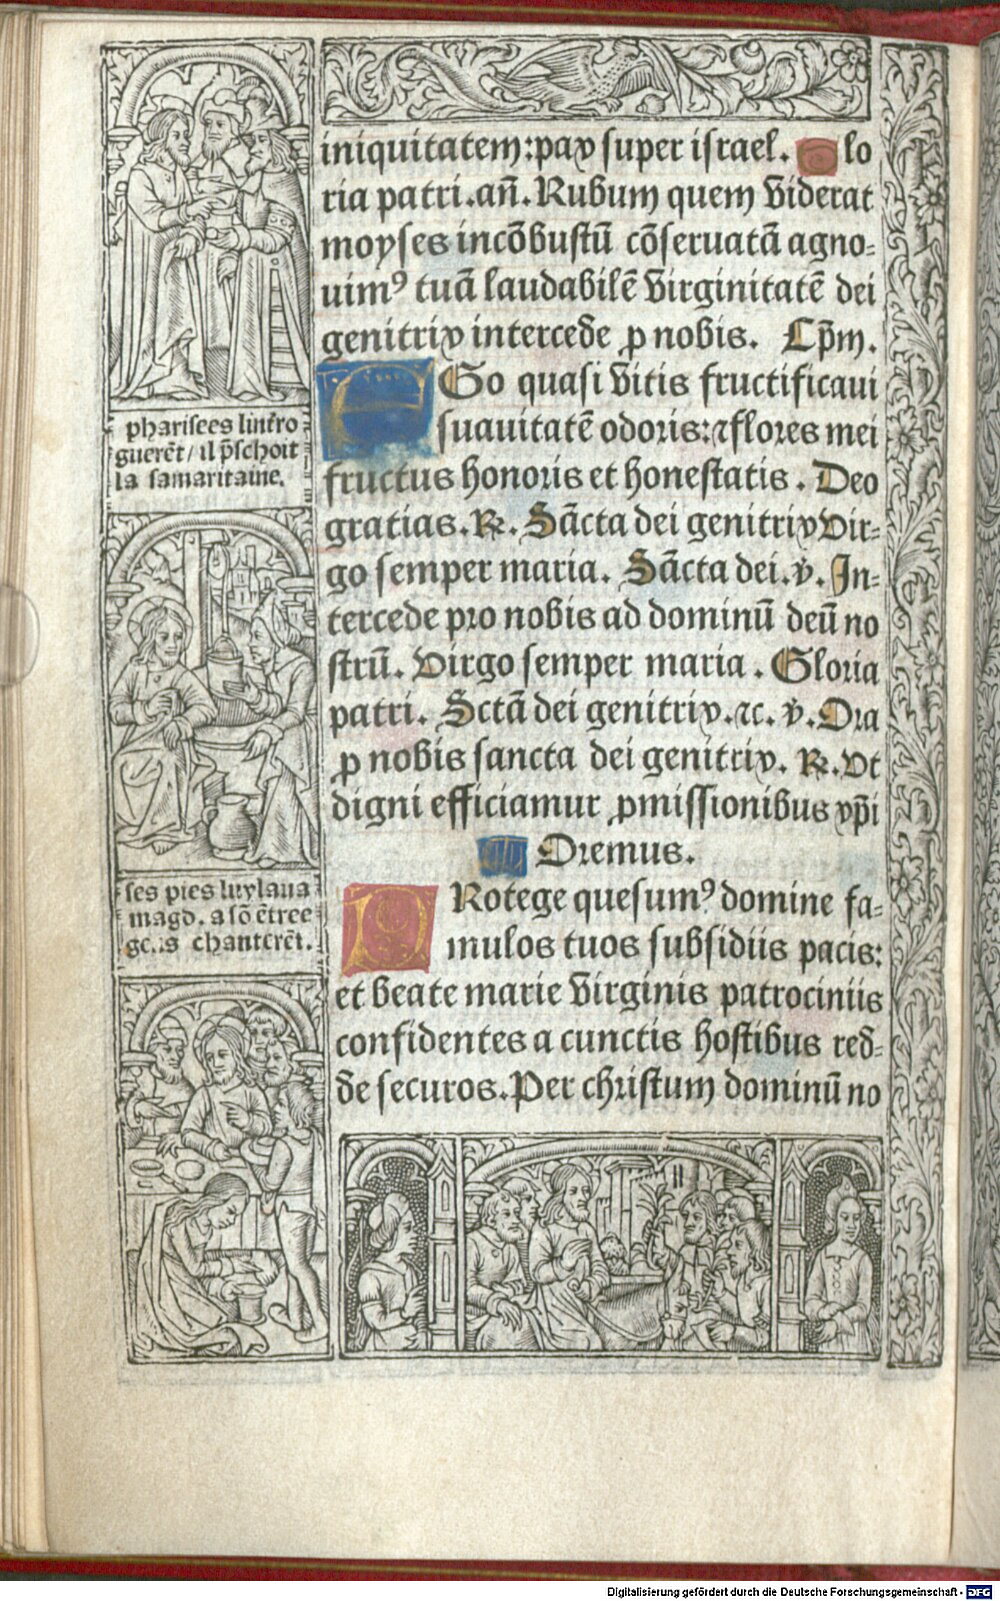 iniquitatem:pax super israel. Glo
ria patri.añ. Rubum quem viderat
moyses incōbustū cōseruatā agno-
uimꝰ tuā laudabilē virginitatē dei
genitrix intercede ꝓ nobis. Cp̄m.
EGo quasi vitis fructificaui
suauitatē odoris:⁊ flores mei
fructus honoris et honestatis. Deo
gratias. ℟. Sācta dei genitrix vir-
go semper maria. Sācta dei. ℣. In-
tercede pro nobis ad dominū deū no
strū. Virgo semper maria. Gloria
patri. Sctā dei genitrix.⁊c. ℣. Ora
ꝓ nobis sancta dei genitrix. ℟. Vt
digni efficiamur ꝓmissionibus xp̄i
Oremus.
PRotege quesumꝰ domine fa-
mulos tuos subsidiis pacis:
et beate marie virginis patrociniis
confidentes a cunctis hostibus red-
de securos. Per christum dominū no
pharisees lintro
guerēt / il p̄schoit
la samaritaine.
ses pies luy laua
magd. a sō ētree
gens chanterēt.
Digitalisierung gefördert durch die Deutsche Forschungsgemeinschaft - DFG